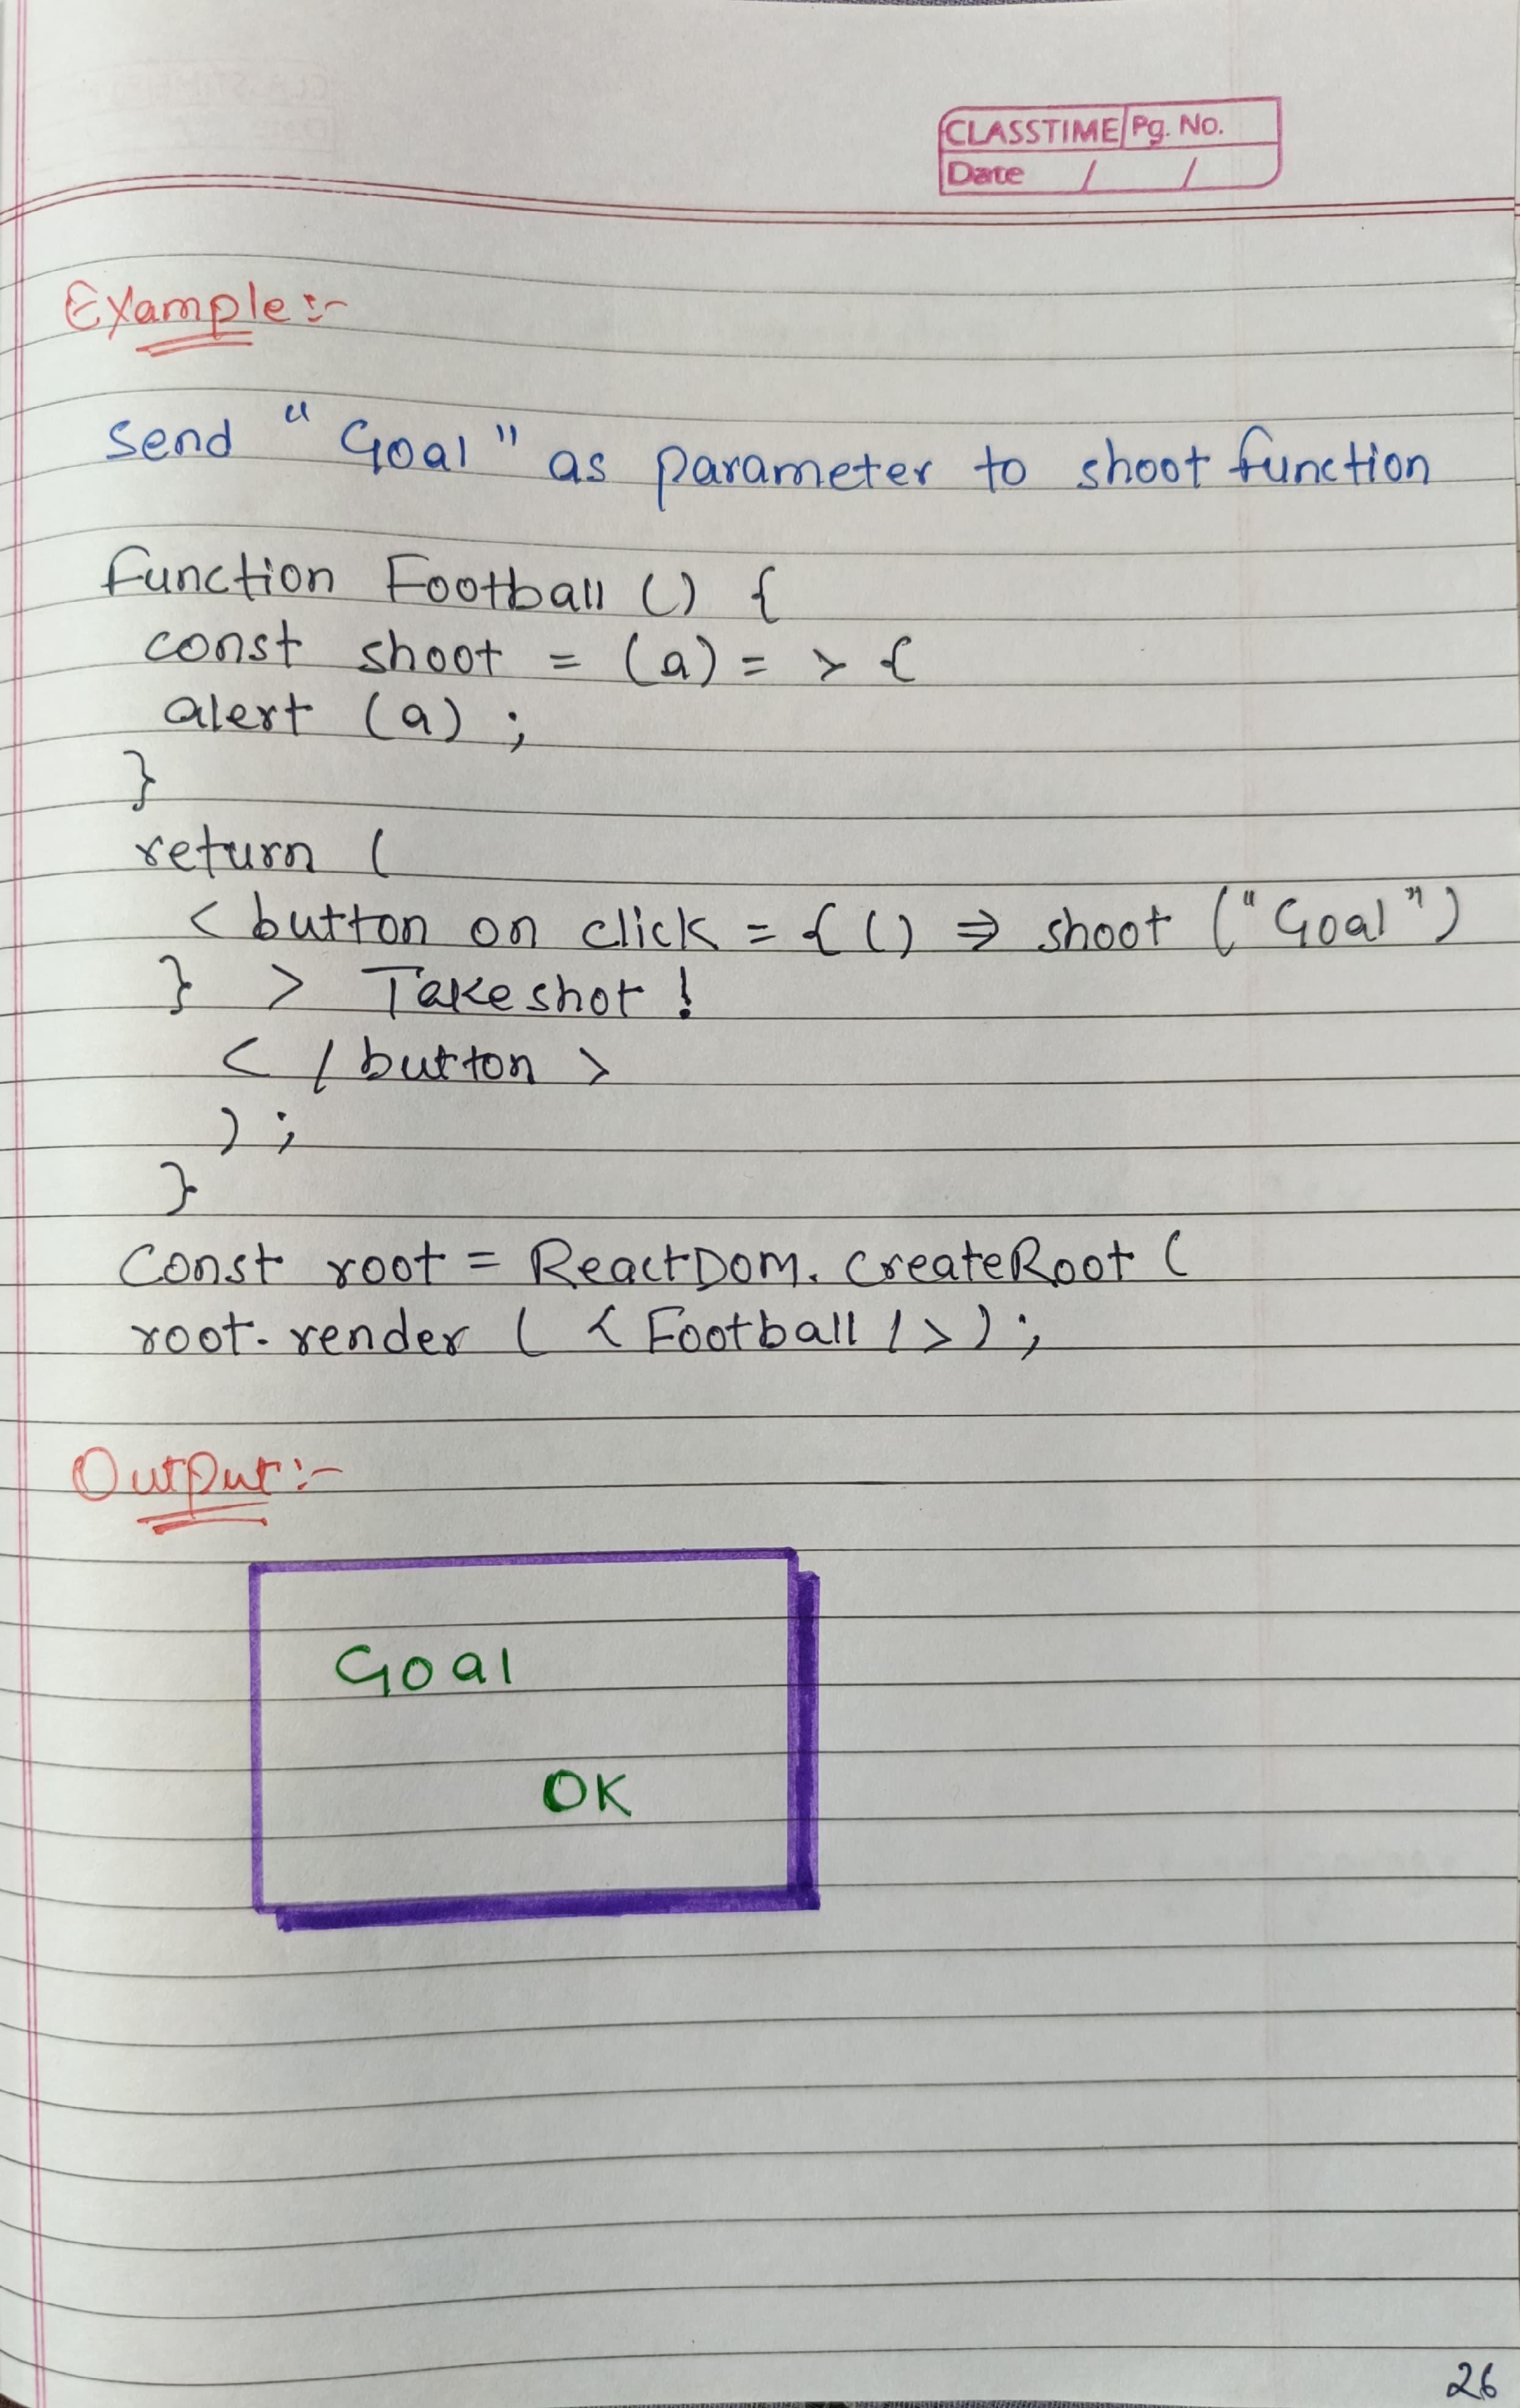 CLASSTIME Pg. No.
Date / /
Example:-
Send "Goal" as parameter to shoot function
function Football () {
const shoot = (a) = > {
alert (a) ;
}
return (
< button on click = { () => shoot ("Goal")
} > Take shot !
< / button >
) ;
}
const root = ReactDom. createRoot (
root. render ( < Football / > ) ;
Output:-
Goal
OK
26